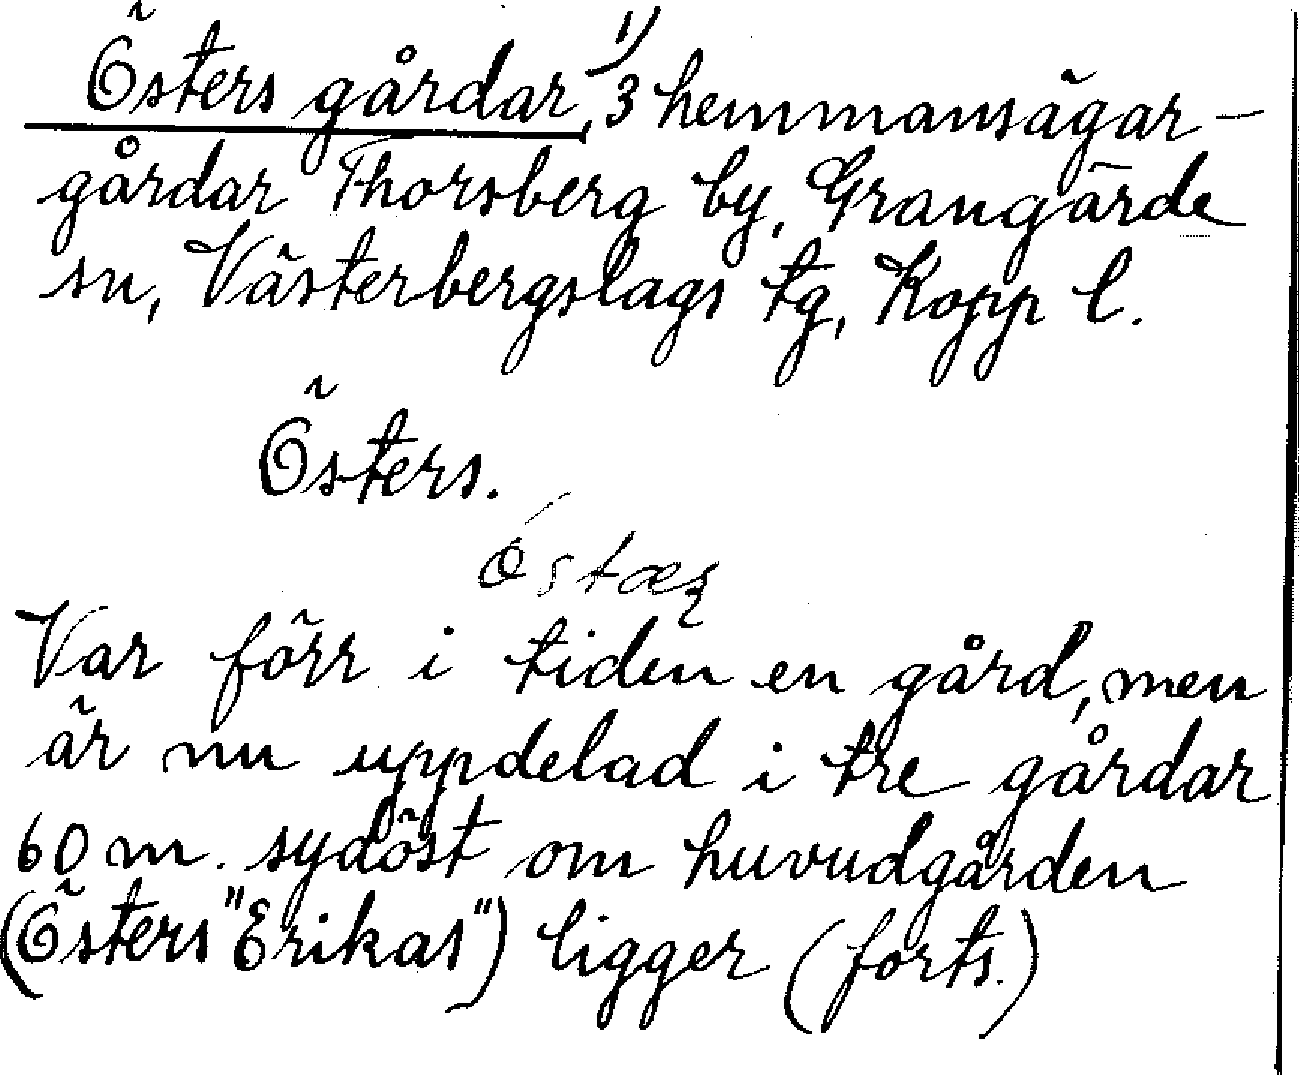 Östers gårdar,¹⁾ 3 hemmansägar-
gårdar Thorsberg by, Grangärde
sn, Västerbergslags tg, Kopp l.
Östers.
Var förr i tiden en gård, men
är nu uppdelad i tre gårdar
60 m. sydöst om huvudgården
(Östers "Erikas") ligger (forts.)